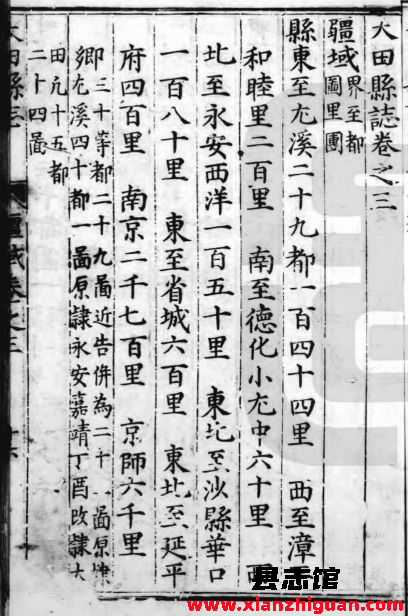 大田縣誌卷之三
疆域 界至都
圖里團
縣東至尤溪二十九都一百四十四里 西至漳
和睦里二百里 南至德化小尤中六十里 西
北至永安西洋一百五十里 東北至沙縣華口
一百八十里 東至省城六百里 東北至延平
府四百里 南京二千七百里 京師六千里
即三十等都二十九啚近告併為二十 啚原隸
鄉尤溪四十都一啚原隸永安嘉靖丁酉改隸大
田凡十五都
二十四啚
大田縣志 疆域卷之三
县志馆
www.xianzhiguan.com